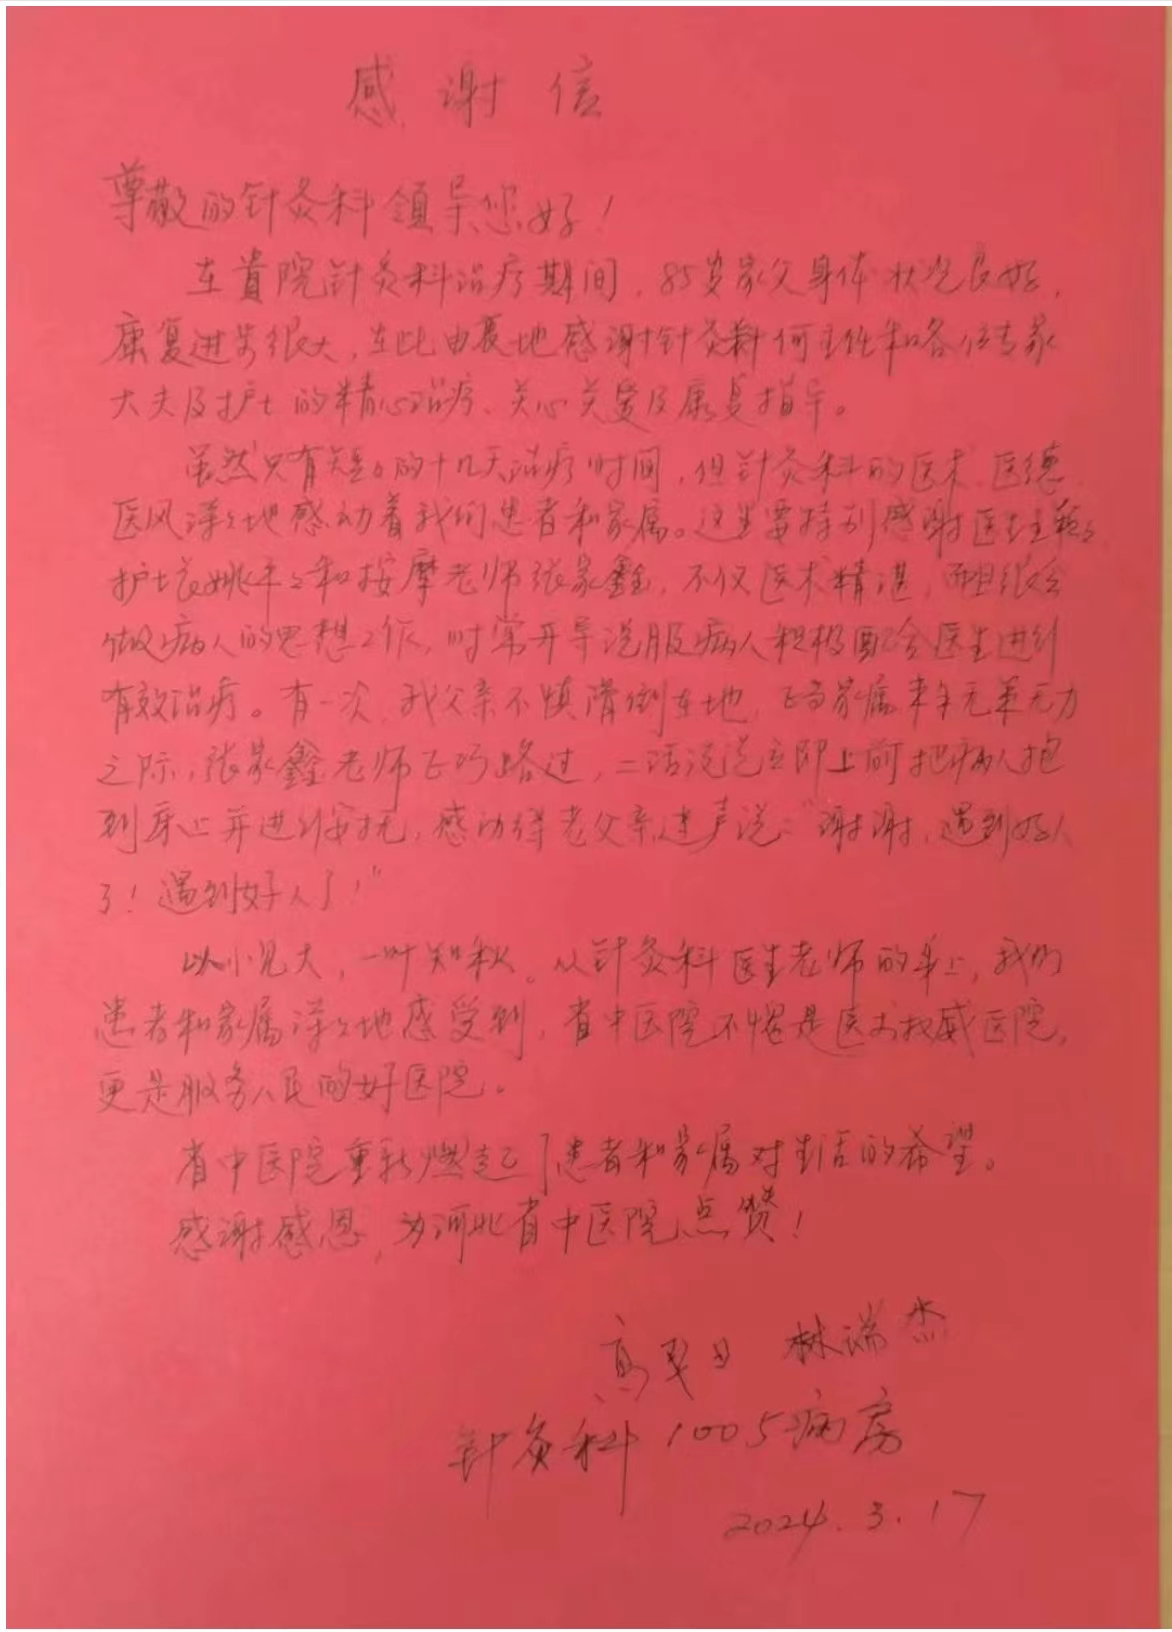 感谢信
尊敬的针灸科领导您好！
在贵院针灸科治疗期间，85岁家父身体状况良好，
康复进步很大，在此由衷地感谢针灸科何主任和各位专家
大夫及护士的精心治疗、关心关爱及康复指导。
虽然只有短々的十几天治疗时间，但针灸科的医术、医德、
医风深々地感动着我们患者和家属。这里要特别感谢医生
护士长姚平々和按摩老师张家鑫，不仅医术精湛，而且很会
做病人的思想工作，时常开导说服病人积极配合医生进行
有效治疗。有一次，我父亲不慎滑倒在地，正当家属束手无策无力
之际，张家鑫老师正巧路过，二话没说立即上前把病人抱
到床上并进行安抚，感动得老父亲连声说：“谢谢，遇到好人
了！遇到好人了！”
以小见大，一叶知秋。从针灸科医生老师的身上，我们
患者和家属深々地感受到，省中医院不愧是医术权威医院，
更是服务人民的好医院。
省中医院重新燃起了患者和家属对生活的希望。
感谢感恩，为河北省中医院点赞！
高 林瑞杰
针灸科1005病房
2024.3.17